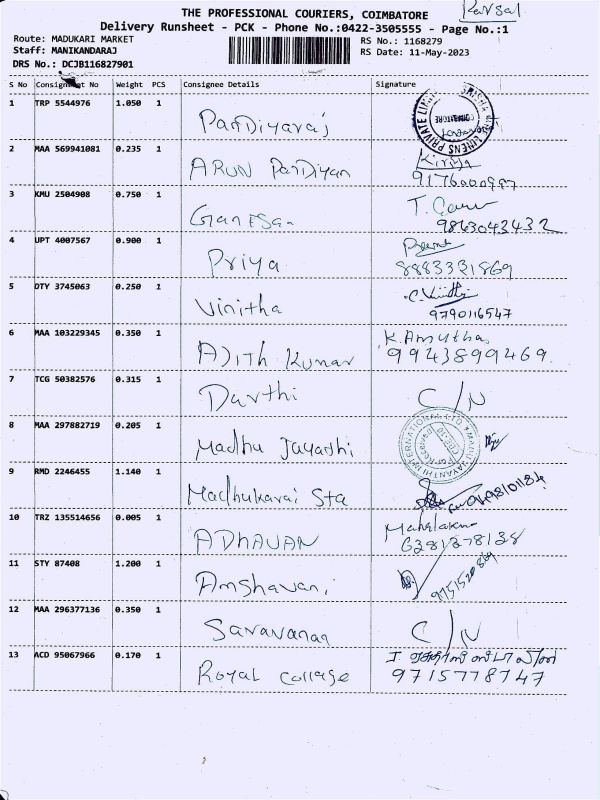 THE PROFESSIONAL COURIERS, COIMBATORE
Delivery Runsheet - PCK - Phone No.:0422-3505555 - Page No.:1
Route: MADUKARI MARKET
RS No.: 1168279
Staff: MANIKANDARAJ
RS Date: 11-May-2023
DRS No.: DCJB116827901
S No Consignment No Weight PCS Consignee Details Signature
1 TRP 5544976 1.050 1
Pandiyaraj
2 MAA 569941081 0.235 1
ARUN Pandiyan
3 KMU 2504908 0.750 1
Ganesan
9863043432
4 UPT 4007567 0.900 1
Priya
8883331869
5 DTY 3745063 0.250 1
Vinitha
9790116547
6 MAA 103229345 0.350 1
K. Amutha
Adith Kumar 9943899469.
7 TCG 50382576 0.315 1
Darthi C/N
8 MAA 297882719 0.205 1
Madhu Jayashi
9 RMD 2246455 1.140 1
Madhukarai Sta
10 TRZ 135514656 0.005 1
ADHAVAN
6381278138
11 STY 87408 1.200 1
Amshavani
12 MAA 296377136 0.350 1
Saravanan C/N
13 ACD 95067966 0.170 1
Royal Collage 9715778747